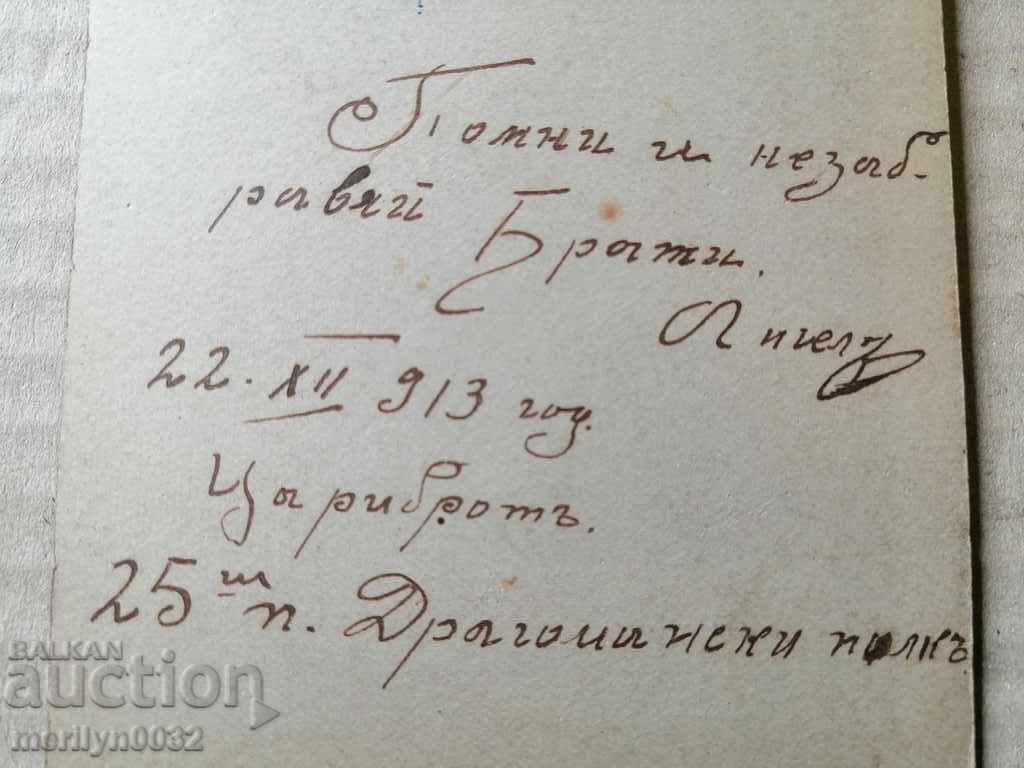 Помни и незаб-
равяй Брати.
22. XII 913 год.
Царибротъ.
25ти п. Драгомански полкъ
BALKAN
auction
merilyn0032